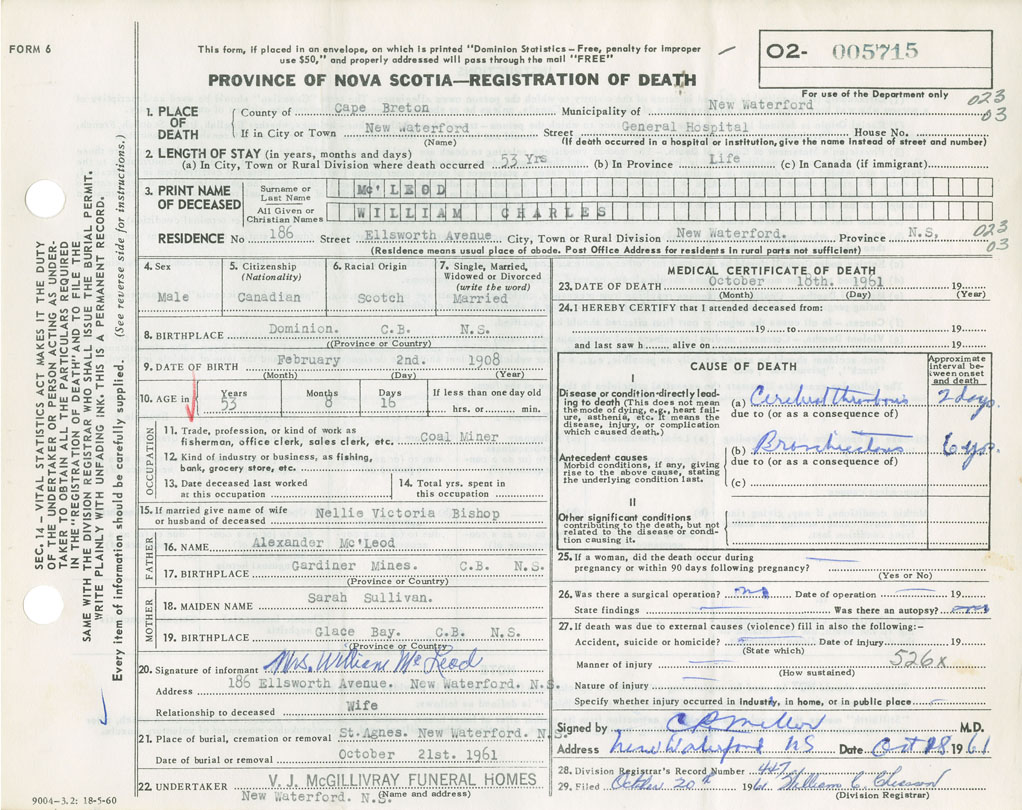 FORM 6
This form, if placed in an envelope, on which is printed "Dominion Statistics – Free, penalty for improper
use $50," and properly addressed will pass through the mail "FREE"
O2- 005715
For use of the Department only
PROVINCE OF NOVA SCOTIA—REGISTRATION OF DEATH
023
03
1. PLACE OF DEATH
County of Cape Breton Municipality of New Waterford
If in City or Town New Waterford Street General Hospital House No.
(Name) (If death occurred in a hospital or institution, give the name instead of street and number)
2. LENGTH OF STAY (in years, months and days)
(a) In City, Town or Rural Division where death occurred 53 Yrs (b) In Province Life (c) In Canada (if immigrant)
3. PRINT NAME OF DECEASED
Surname or Last Name Mc'LEOD
All Given or Christian Names WILLIAM CHARLES
RESIDENCE No 186 Street Ellsworth Avenue City, Town or Rural Division New Waterford. Province N.S,
023
03
(Residence means usual place of abode. Post Office Address for residents in rural parts not sufficient)
4. Sex
Male
5. Citizenship
(Nationality)
Canadian
6. Racial Origin
Scotch
7. Single, Married, Widowed or Divorced
(write the word)
Married
8. BIRTHPLACE Dominion. C.B. N.S.
((Province or Country)
9. DATE OF BIRTH February 2nd. 1908
(Month) (Day) (Year)
10. AGE in Years Months Days If less than one day old
53 8 16 hrs. or min.
OCCUPATION
11. Trade, profession, or kind of work as
fisherman, office clerk, sales clerk, etc. Coal Miner
12. Kind of industry or business, as fishing,
bank, grocery store, etc.
13. Date deceased last worked
at this occupation
14. Total yrs. spent in
this occupation
15. If married give name of wife
or husband of deceased Nellie Victoria Bishop
FATHER
16. NAME Alexander Mc'Leod
17. BIRTHPLACE Gardiner Mines. C.B. N.S.
(Province or Country)
MOTHER
18. MAIDEN NAME Sarah Sullivan.
19. BIRTHPLACE Glace Bay. C.B. N.S.
(Province or Country)
20. Signature of informant Mrs. William McLeod
Address 186 Ellsworth Avenue. New Waterford. N.S.
Relationship to deceased Wife
21. Place of burial, cremation or removal St-Agnes. New Waterford. N.S.
Date of burial or removal October 21st. 1961
22. UNDERTAKER V. J. McGILLIVRAY FUNERAL HOMES
New Waterford. N.S. (Name and address)
9004-3.2: 18-5-60
MEDICAL CERTIFICATE OF DEATH
23. DATE OF DEATH October 18th. 1961 19
(Month) (Day) (Year)
24. I HEREBY CERTIFY that I attended deceased from:
19 to 19
and last saw h alive on 19
CAUSE OF DEATH
Approximate interval between onset and death
I
Disease or condition directly leading to death (This does not mean
the mode of dying, e.g., heart failure, asthenia, etc. It means the
disease, injury, or complication
which caused death.)
(a) Cerebral thrombosis 2 days
due to (or as a consequence of)
(b) Bronchiectasis 6 yrs.
due to (or as a consequence of)
(c)
Antecedent causes
Morbid conditions, if any, giving
rise to the above cause, stating
the underlying condition last.
II
Other significant conditions
contributing to the death, but not
related to the disease or condition causing it.
25. If a woman, did the death occur during
pregnancy or within 90 days following pregnancy?
(Yes or No)
26. Was there a surgical operation? no Date of operation 19
State findings Was there an autopsy? no
27. If death was due to external causes (violence) fill in also the following:-
Accident, suicide or homicide? Date of injury 19
(State which)
526x
Manner of injury
(How sustained)
Nature of injury
Specify whether injury occurred in industry, in home, or in public place
Signed by M.D.
Address New Waterford NS Date Oct 18 1961
28. Division Registrar's Record Number 447
29. Filed October 20th 1961
(Division Registrar)
SEC. 14 – VITAL STATISTICS ACT MAKES IT THE DUTY
OF THE UNDERTAKER OR PERSON ACTING AS UNDER-
TAKER TO OBTAIN ALL THE PARTICULARS REQUIRED
IN THE "REGISTRATION OF DEATH" AND TO FILE THE
SAME WITH THE DIVISION REGISTRAR WHO SHALL ISSUE THE BURIAL PERMIT.
WRITE PLAINLY WITH UNFADING INK. THIS IS A PERMANENT RECORD.
Every item of information should be carefully supplied. (See reverse side for instructions.)